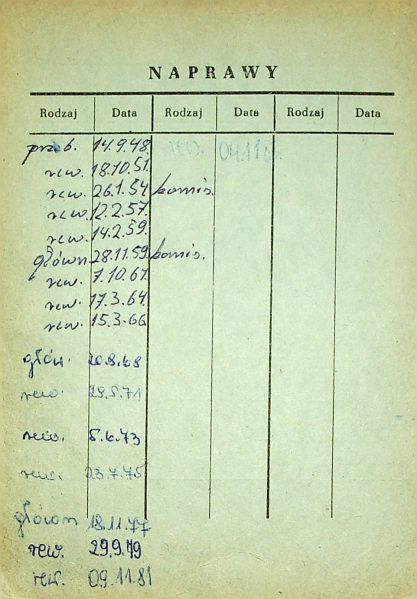 NAPRAWY
Rodzaj Data Rodzaj Data Rodzaj Data
14.9.48. rew.
rew. 18.10.51.
rew. 26.1.54. komis.
rew. 12.2.57.
rew. 14.2.59.
główn. 28.11.59. komis.
rew. 7.10.61.
rew. 17.3.64.
rew. 15.3.66.
głów. 20.8.68
rew. 29.5.71
rew. 5.6.73
rew. 23.7.75
główn 18.11.77
rew. 29.9.79
rew. 09.11.81